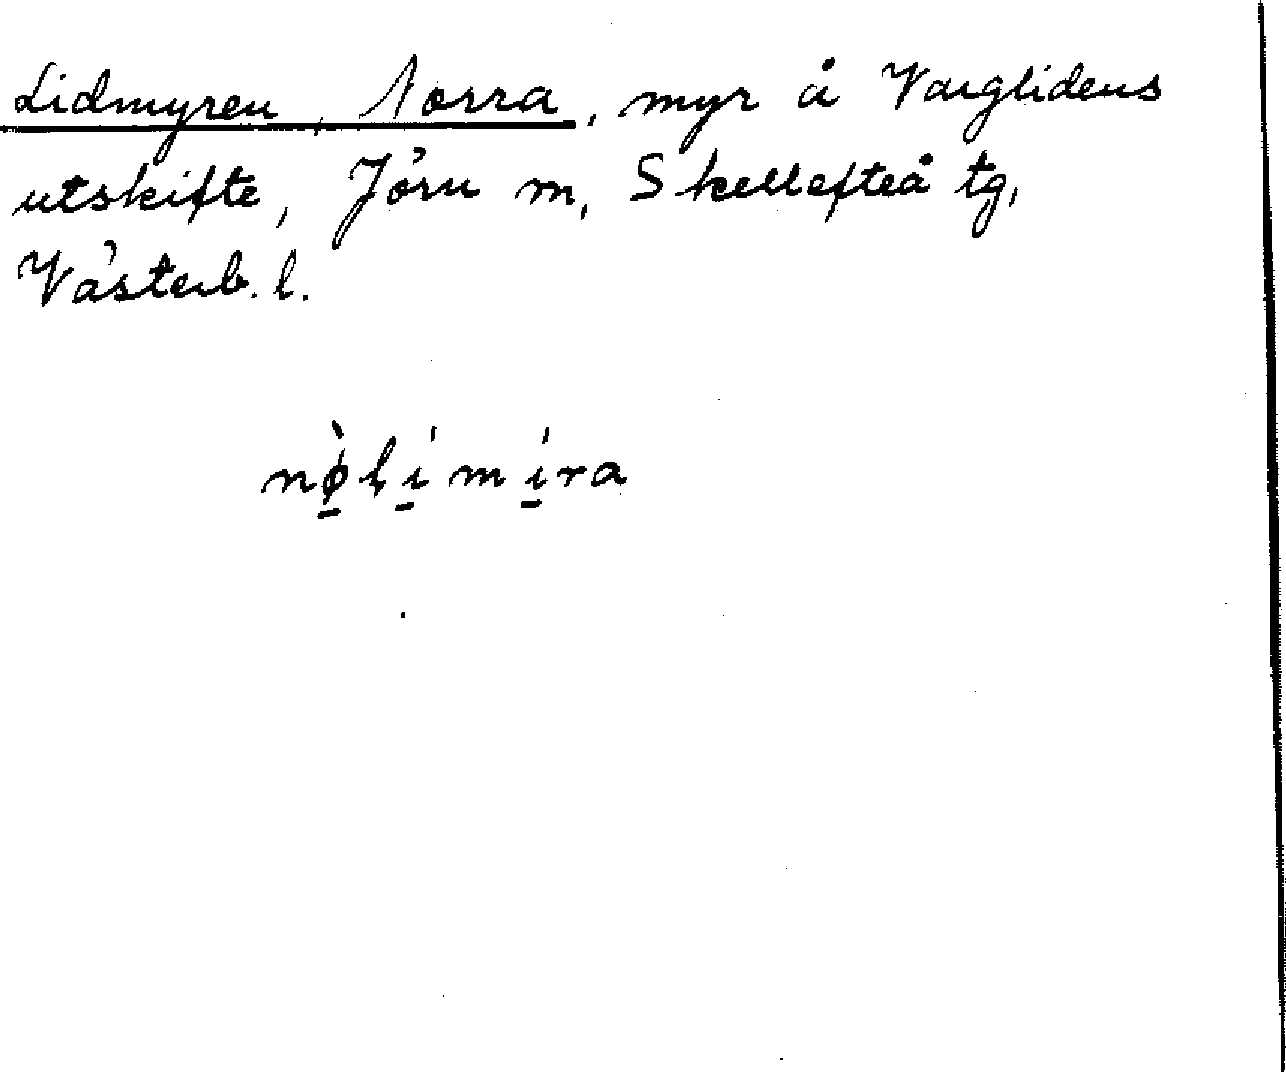 Lidmyren, Norra, myr å Varglidens
utskifte, Jörn m, Skellefteå tg,
Västerb. l.
nø̱̀lí̱mí̱ra